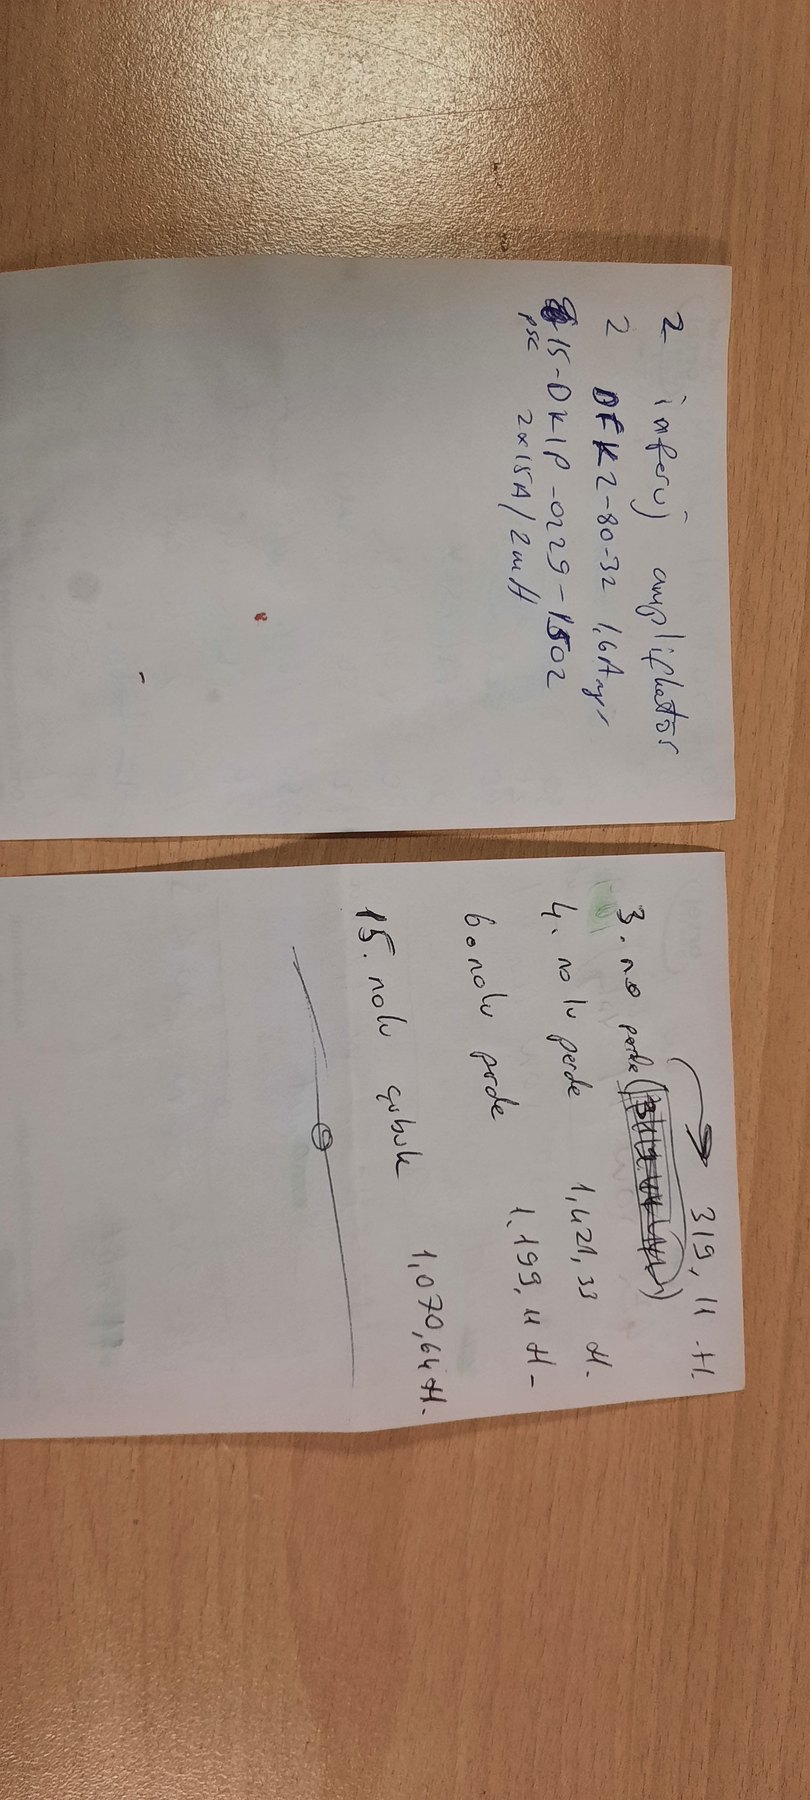 2 inferuj amplifikatör
2 DFKZ-80-32 1,6A
15-DKIP-0229-1502
psc 2x15A/2mH
3. no perde 319,11 H.
4. nolu perde 1,421,33 H.
6. nolu perde 1.199,11 H-
15. nolu çubuk 1,070,64 H.